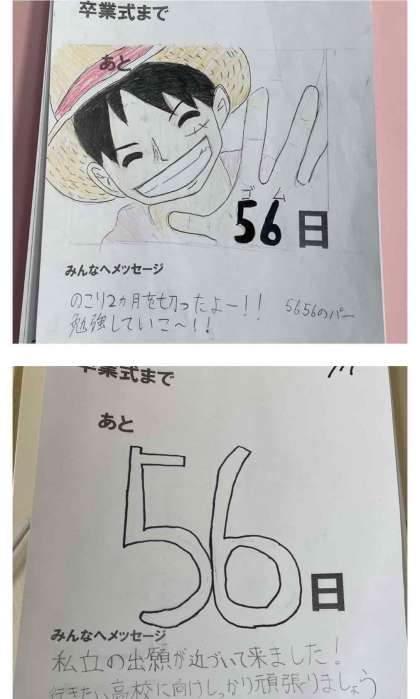 卒業式まで
あと
ゴム
56日
みんなへメッセージ
のこり2ヵ月を切ったよー!!
5656のパー
勉強していこ〜!!
卒業式まで
あと
56日
みんなへメッセージ
私立の出願が近づいて来ました!
行きたい高校に向けしっかり頑張りましょう